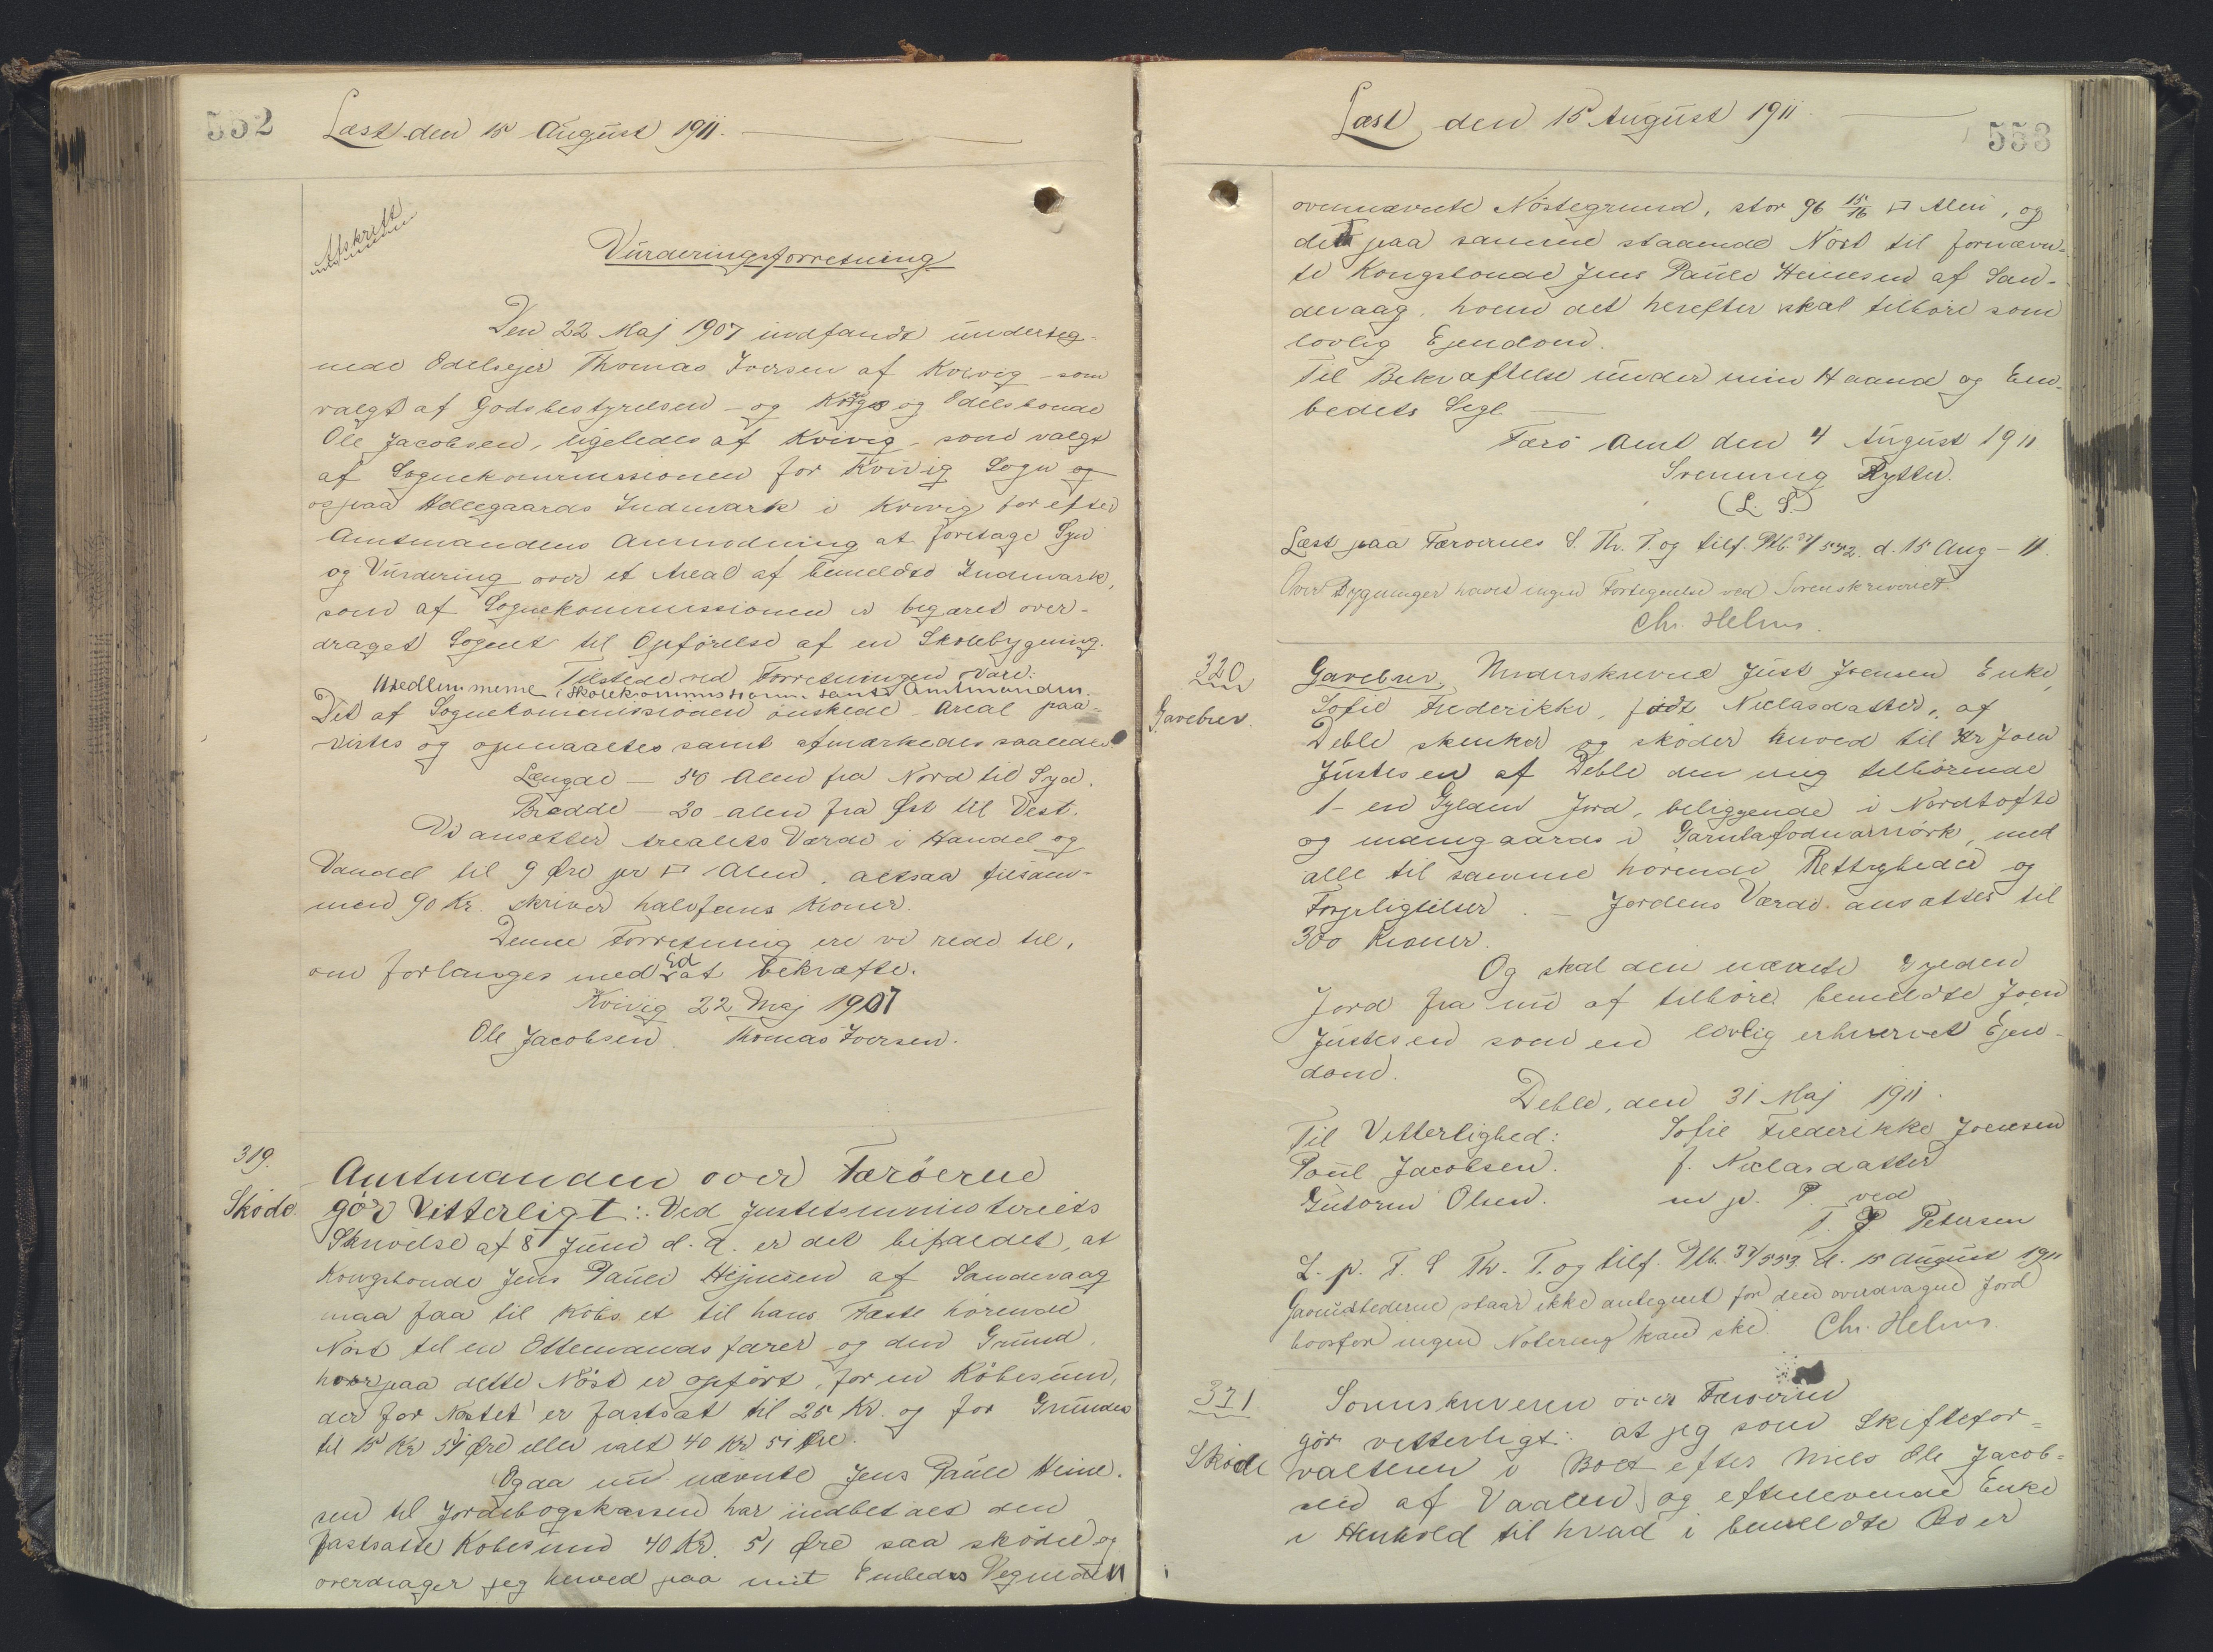 552
Læst den 15 August 1911.
Afskrift
Vurderingsforretning
Den 22 Maj 1907 indfandt underteg-
nede Odelsejer Thomas Iversen af Kvivig - som
valgt af Godsbestyrelsen - og Kongs og Odelsbonde
Ole Jacobsen, ligeledes af Kvivig - som valgt
af Sognekommissionen for Kvivig Sogn og
os paa Indmark i Kvivig for efter
Amtmandens Anmodning at foretage Syn
og Vurdering over et Areal af bemeldte Indmark,
som af Sognekommissionen er begæret over-
draget Sognet til Opførelse af en Skolebygning.
Tilstede ved Forretningen vare:
Medlemmerne i Skolekommissionen samt Amtmanden.
Det af Sognekommissionen ønskede Areal paa-
vistes og opmaaltes samt afmærkedes saaledes
Længde — 50 Alen fra Nord til Syd.
Bredde — 20 alen fra Øst til Vest.
Vi ansætter Arealets Værdi i Handel og
Vandel til 9 Øre pr □ Alen, altsaa tilsam-
men 90 Kr. skriver halvfems Kroner.
Denne Forretning ere vi rede til,
om forlanges med Ed at bekræfte.
Kvivig 22 Maj 1907
Ole Jacobsen. Thomas Iversen.
319.
Skøde.
Amtmanden over Færöerne
gör Vitterligt: Ved Justitsministeriets
Skrivelse af 8 Juni d. A. er det bifaldet, at
Kongsbonde Jens Paule Hejnesen af Sandevaag
maa faa til Købs et til hans Fæste hørende
Nøst til en Ottemandsfarer og den Grund,
hvorpaa dette Nöst er opført, for en Köbesum,
der for Nøstet er fastsat til 25 Kr. og for Grunden
til 15 Kr 51 Øre eller ialt 40 Kr 51 Øre.
Og da nu nævnte Jens Paule Heine-
sen til Jordebogskassen har indbetalt den
fastsatte Købesum 40 Kr. 51 Øre saa skøder og
overdrager jeg herved paa mit Embeds Vegne den
Læst den 15 August 1911.
553
ovennævnte Nöstegrund, stor 96 15/16 □ Alen, og
det paa samme staaende Nöst til fornævn-
te Kongsbonde Jens Paule Heinesen af San-
devaag, hvem det herefter skal tilhöre som
lovlig Ejendom.
Til Bekræftelse under min Haand og Em-
bedets Segl.
Færö Amt den 4 August 1911
Svenning Rytter.
(L. S.)
Læst paa Færöernes S. Th. T. og tilf. Ptb. 37/552. d. 15 Aug - 11.
Over Bygninger haves ingen Fortegnelse ved Sorenskriveriet
Chr. Helms.
320
Gavebrev.
Gavebrev. Underskrevne Just Joensens Enke,
Sofie Frederikke, født Niclasdatter, af
Deble skenker og skøder herved til Hr Joen
Justesen af Deble den mig tilhørende
1 - en Gylden Jord, beliggende i Nordtofte
og i mark, med
alle til samme hørende Rettigheder og
Forpligtelser. — Jordens Værdi ansættes til
300 Kroner.
Og skal den nævnte Gylden
Jord fra nu af tilhøre bemeldte Joen
Justesen som en lovlig erhvervet Ejen-
dom.
Deble, den 31 Maj 1911.
Til Vitterlighed: Sofie Frederikke Joensen
Poul Jacobsen. f. Niclasdatter
Gutorm Olsen. m. p. P. ved
T. P. Petersen
L. p. F. S. Th. T. og tilf. Ptb. 37/553. d. 15 August 1911
staar ikke antegnet for den overdragne Jord
hvorfor ingen Notering kan ske. Chr. Helms.
321
Skøde
Sorenskriveren over Færøerne
gör vitterligt: at jeg som Skiftefor-
valteren i Boet efter Niels Ole Jacob-
sen af Vaalen og efterlevende Enke
i Henhold til hvad i bemeldte Bo er